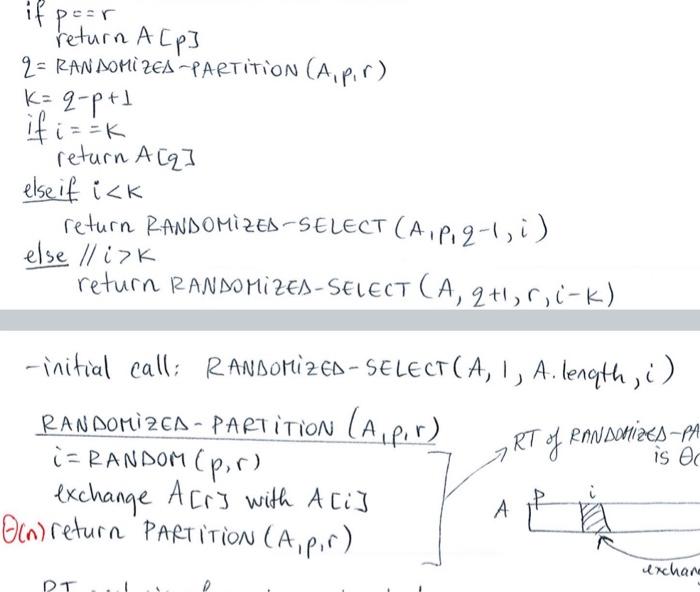 if p==r
return A[p]
q= RANDOMIZED-PARTITION (A,p,r)
K= q-p+1
if i==K
return A[q]
elseif i<K
return RANDOMIZED-SELECT (A,p,q-1,i)
else // i>K
return RANDOMIZED-SELECT (A, q+1, r, i-K)
-initial call: RANDOMIZED-SELECT(A, 1, A.length, i)
RANDOMIZED-PARTITION (A,p,r)
i= RANDOM (p,r)
exchange A[r] with A[i]
Θ(n) return PARTITION (A,p,r)
RT of RANDOMIZED-PA
is Θ(
A p i
exchan